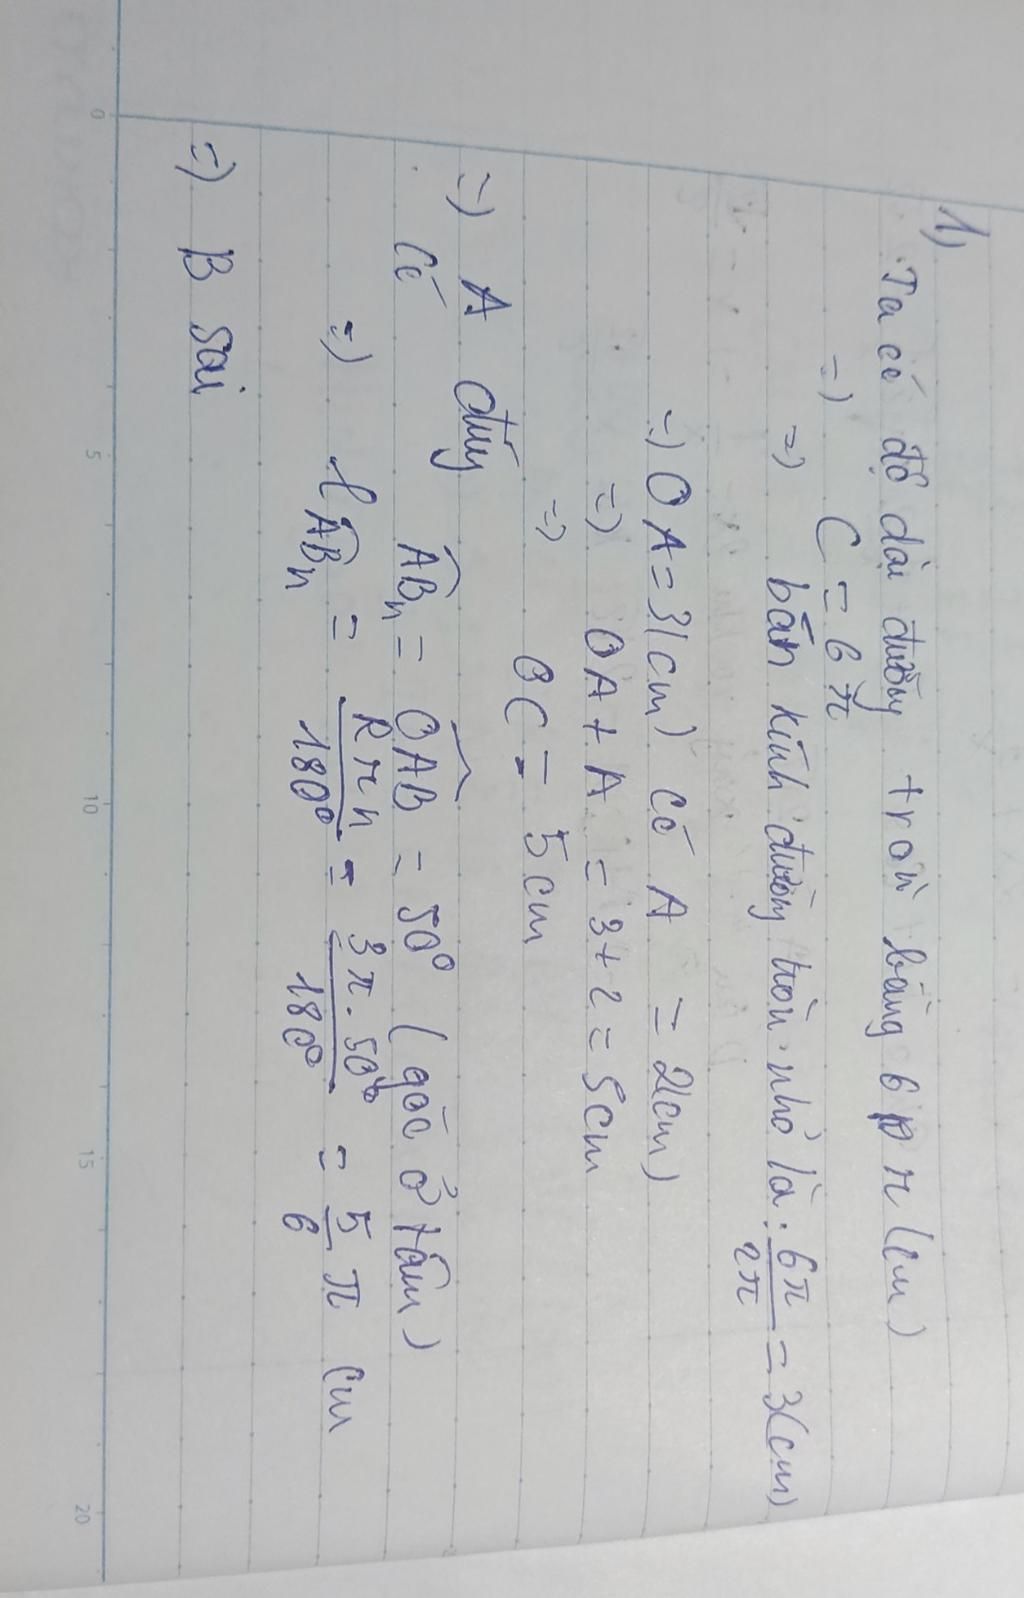 1,
Ta có độ dài đường tròn bằng 6 π (cm)
=> C = 6π
=> bán kính đường tròn nhỏ là: 6π/2π = 3(cm)
=> OA = 3(cm) có A = 2(cm)
=> OA + A = 3 + 2 = 5cm
=> OC = 5cm
=> A đúng
Có ABn = OAB = 50° (góc ở tâm)
=> lABn = Rπn/180° = 3π.50°/180° = 5/6 π cm
=> B sai
0 5 10 15 20